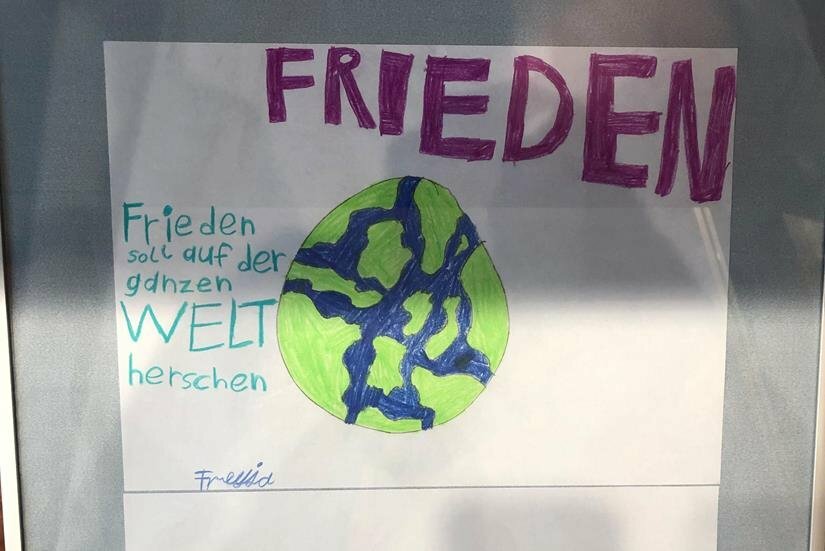 FRIEDEN
Frieden
soll auf der
ganzen
WELT
herschen